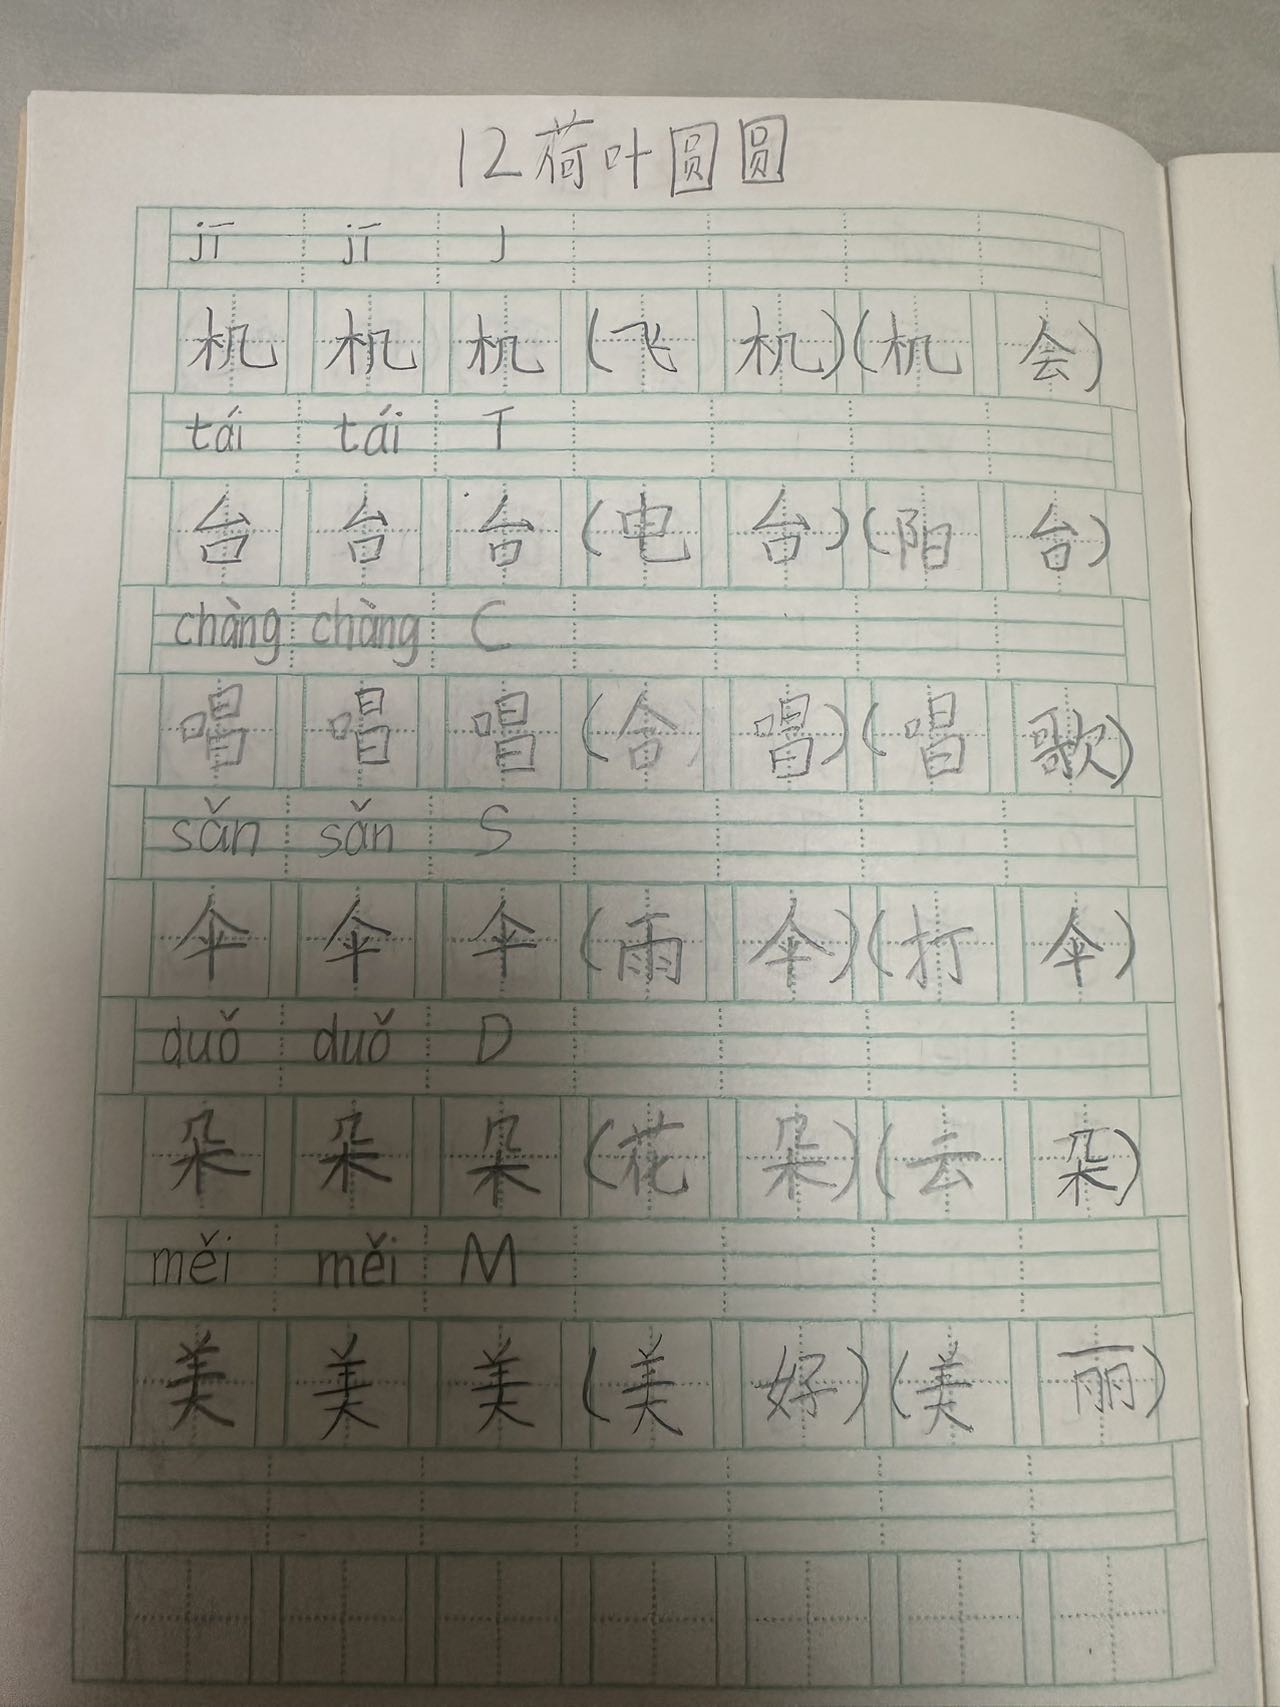 12荷叶圆圆
jī jī J
机 机 机 (飞 机)(机 会)
tái tái T
台 台 台 (电 台)(阳 台)
chàng chàng C
唱 唱 唱 (合 唱)(唱 歌)
sǎn sǎn S
伞 伞 伞 (雨 伞)(打 伞)
duǒ duǒ D
朵 朵 朵 (花 朵)(云 朵)
měi měi M
美 美 美 (美 好)(美 丽)